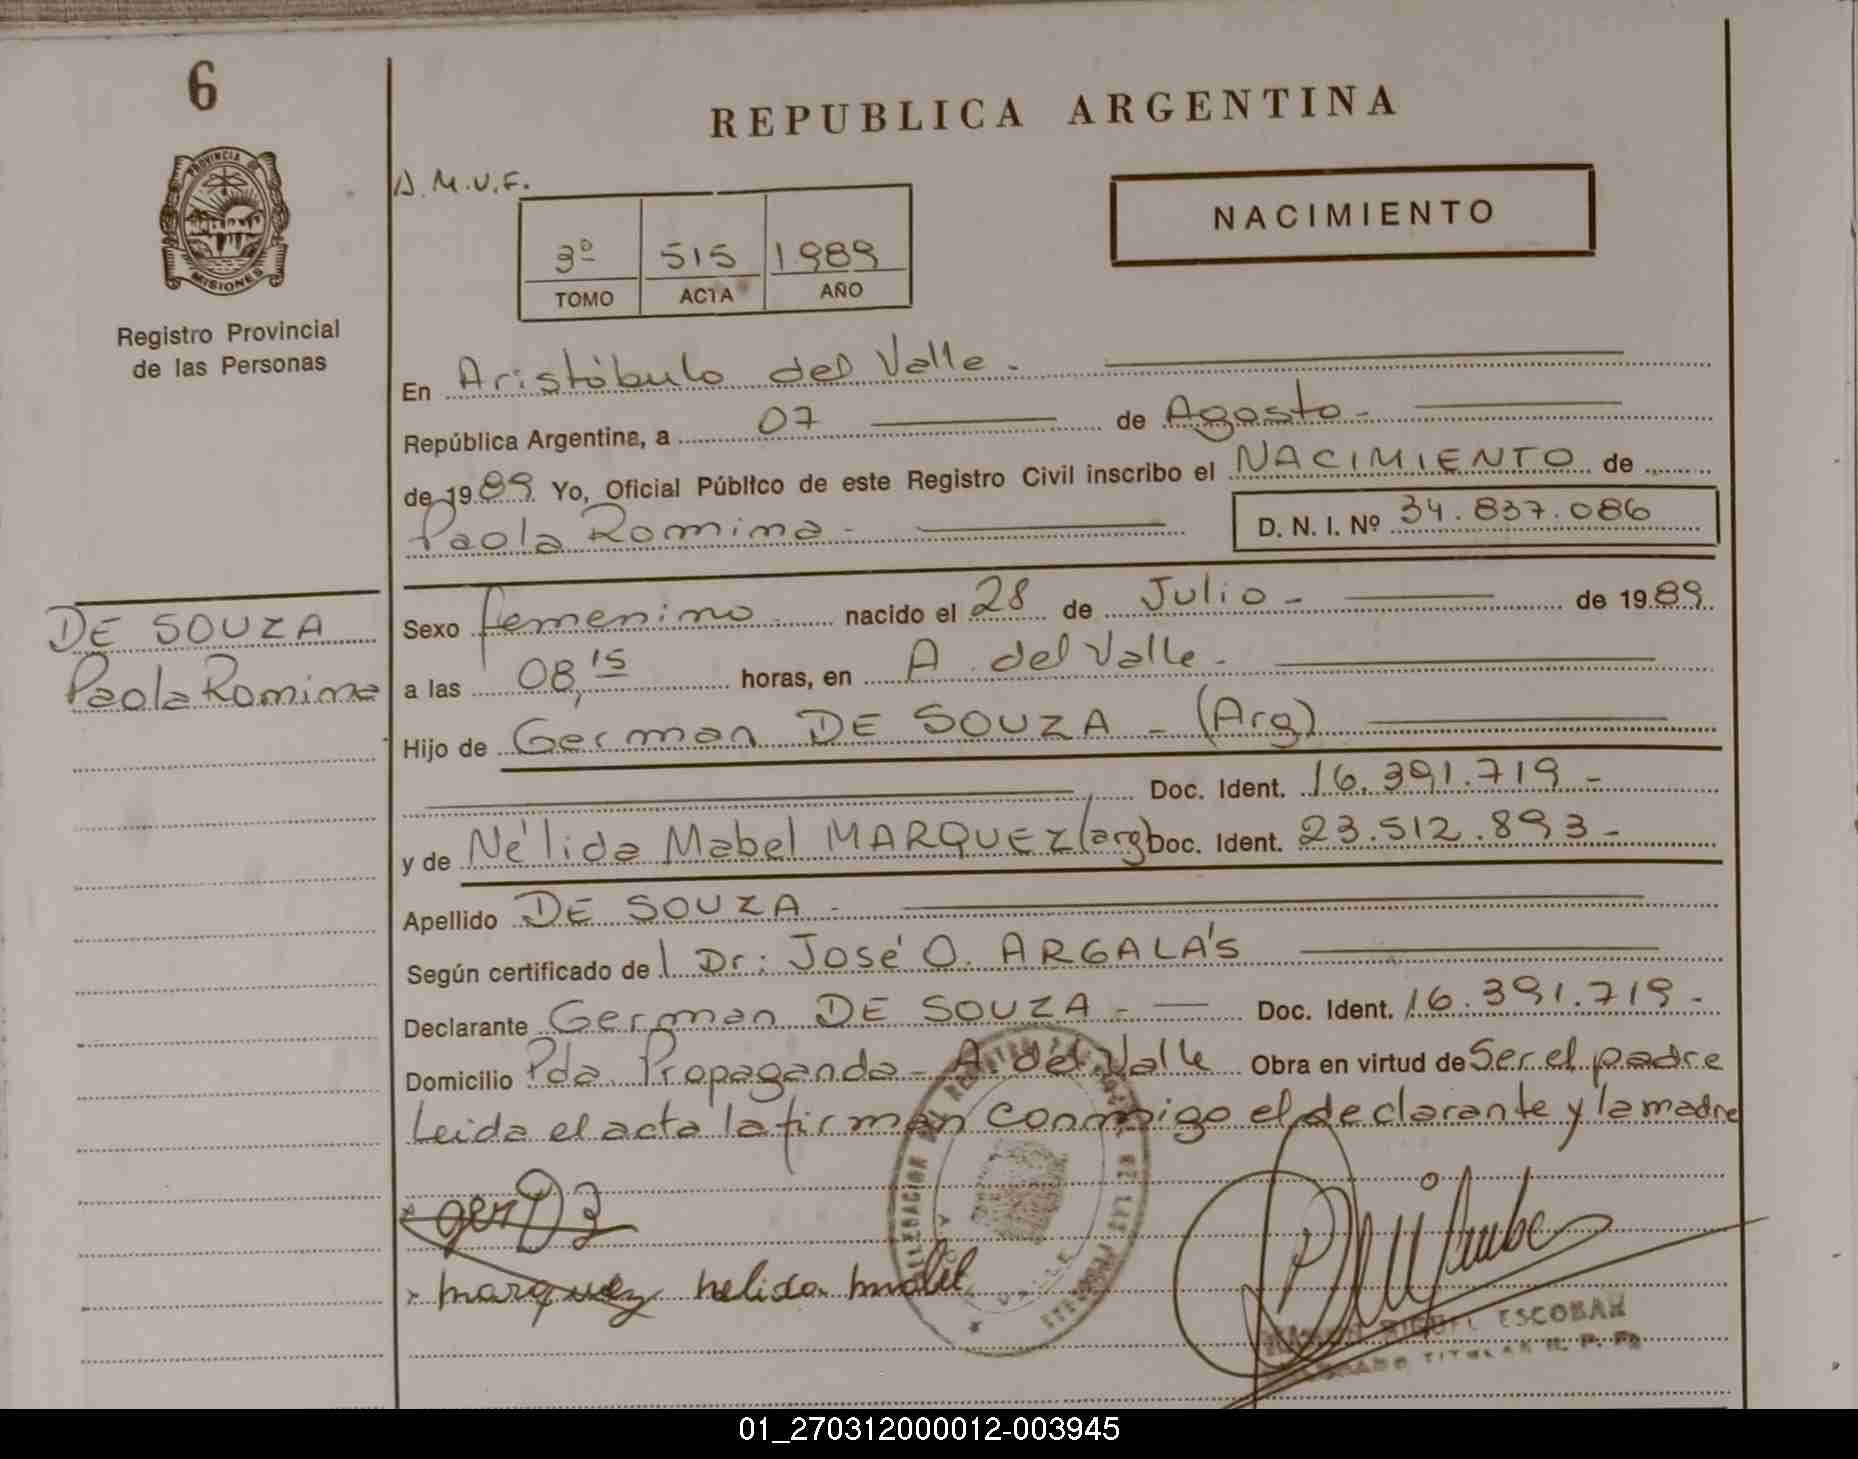 6
PROVINCIA
MISIONES
Registro Provincial
de las Personas
REPUBLICA ARGENTINA
A.M.V.F.
NACIMIENTO
3º 515 1989
TOMO ACTA AÑO
En Aristóbulo del Valle.
República Argentina, a 07 de Agosto -
de 1989 Yo, Oficial Público de este Registro Civil inscribo el NACIMIENTO de
Paola Romina - D. N. I. Nº 34.837.086
DE SOUZA
Paola Romina
Sexo femenino nacido el 28 de Julio - de 1989
a las 08,15 horas, en A. del Valle -
Hijo de German DE SOUZA - (Arg)
Doc. Ident. 16.391.719 -
y de Nélida Mabel MARQUEZ (arg) Doc. Ident. 23.512.893 -
Apellido DE SOUZA -
Según certificado de l Dr: José O. ARGALÁS
Declarante German DE SOUZA - Doc. Ident. 16.391.719 -
Domicilio Pda. Propaganda - A. del Valle Obra en virtud de Ser el padre
Leida el acta la firman conmigo el declarante y la madre
marquez nelida mabel
DELEGACION DEL REGISTRO DE LAS PERSONAS
VALLE
MIGUEL ESCOBAR
TITULAR R. P. P.
01_270312000012-003945